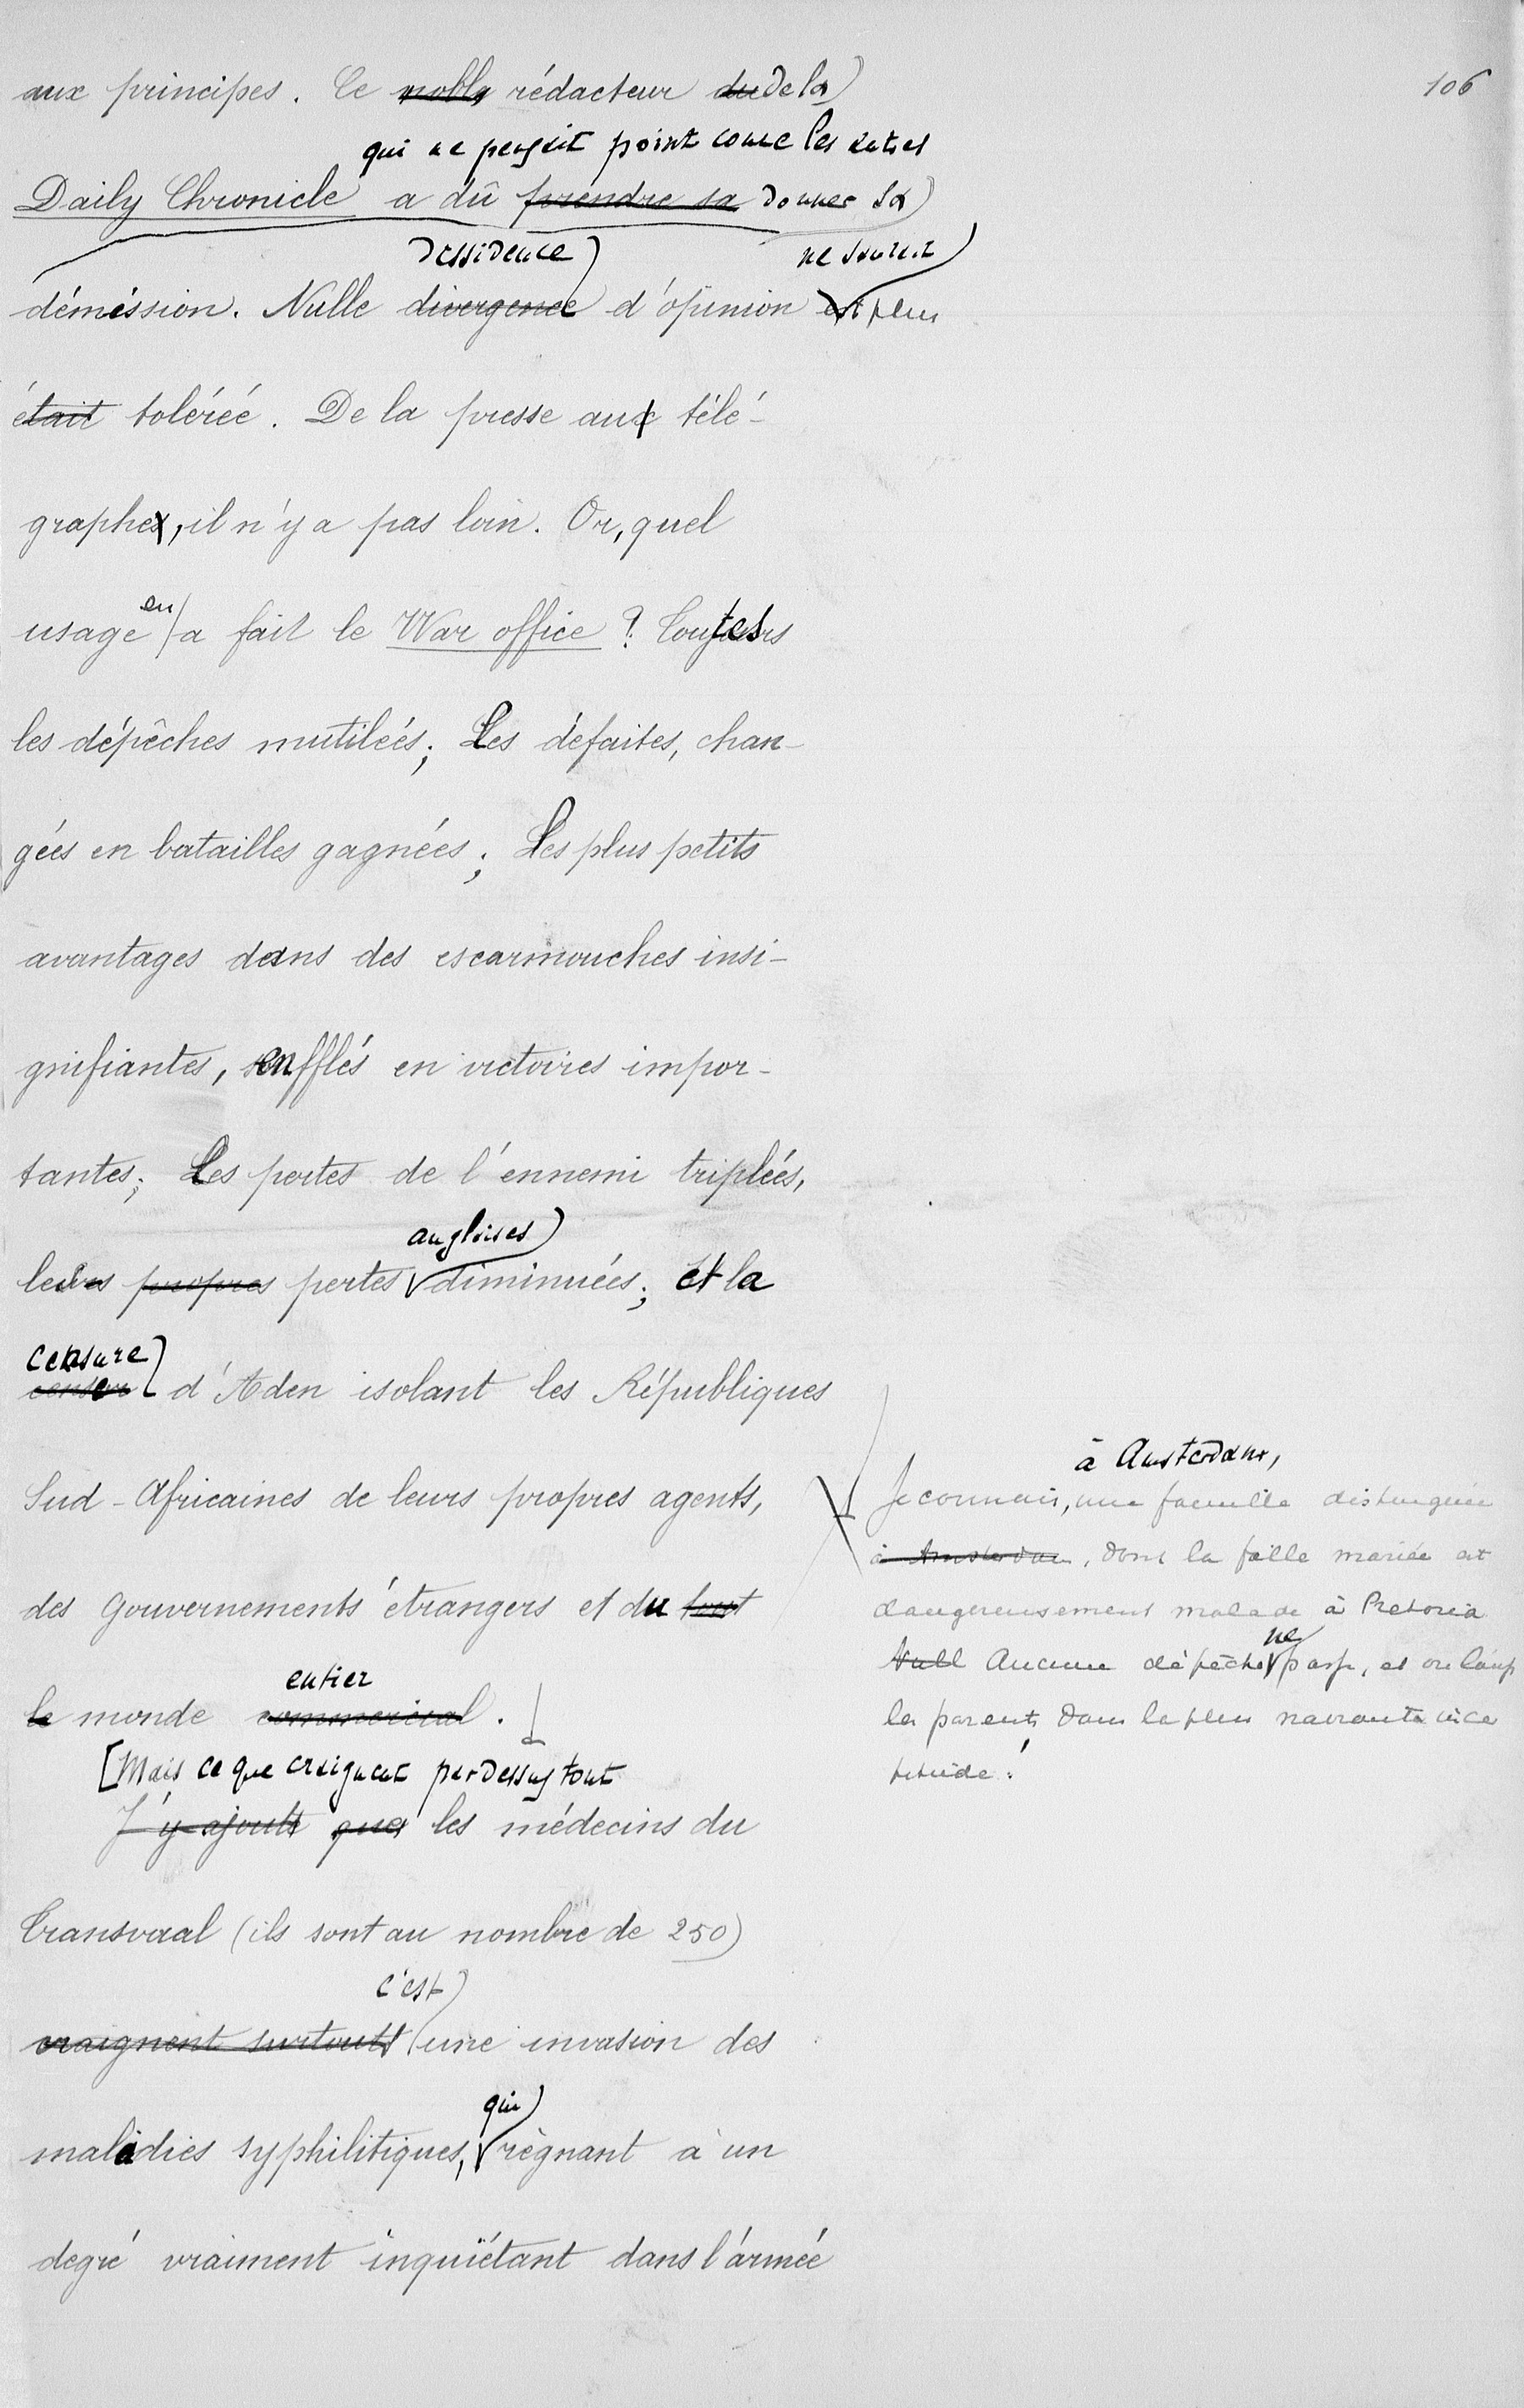 106
aux principes. Ce noble rédacteur du de la
qui ne pensait point comme les autres
Daily Chronicle a dû prendre sa donner sa
dissidence ne saurait
démission. Nulle divergence d'opinion est plus
était toléréé. De la presse aux télé-
graphes, il n'y a pas loin. Or, quel
en
usage a fait le War office ? Toutes
les dépêches mutileés; Les défaites, chan-
gées en batailles gagnées; Les plus petits
avantages dans des escarmouches insi-
gnifiantes, enfflés en victoires impor-
tantes; Les pertes de l'ennemi tripleés,
anglaises
leurs propres pertes diminuées; et la
censure
censure d'Aden isolant les Républiques
Sud-Africaines de leurs propres agents,
des Gouvernements étrangers et du tout
entier
le monde commercial.
[Mais ce que craignent par dessus tout
J'y ajoute que les médecins du
Transvaal (ils sont au nombre de 250)
c'est
craignent surtout une invasion des
qui
maladies syphilitiques, règnant à un
degré vraiment inquiétant dans l'armée
à Amsterdam,
Je connais, une famille distinguée
à Amsterdam, dont la fille mariée est
dangereusement malade à Pretoria
ne
Null Aucune dépêche passe, et on
les parents dans la plus navrante